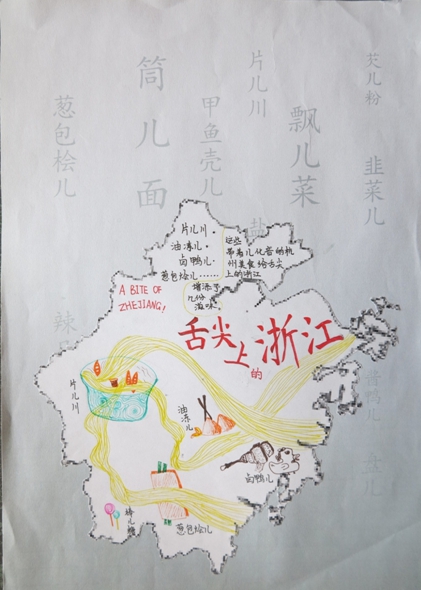 芡儿粉
韭菜儿
飘儿菜
片儿川
甲鱼壳儿
筒儿面
葱包桧儿
酱鸭儿
片儿川·
油冻儿·
卤鸭儿·
葱包烩儿……
这些
带着儿化音的杭
州美食给舌尖
上的浙江
增添了
几份
滋味。
A BITE OF
ZHEJIANG!
舌尖上的浙江
片儿川
油冻儿
卤鸭儿
葱包烩儿